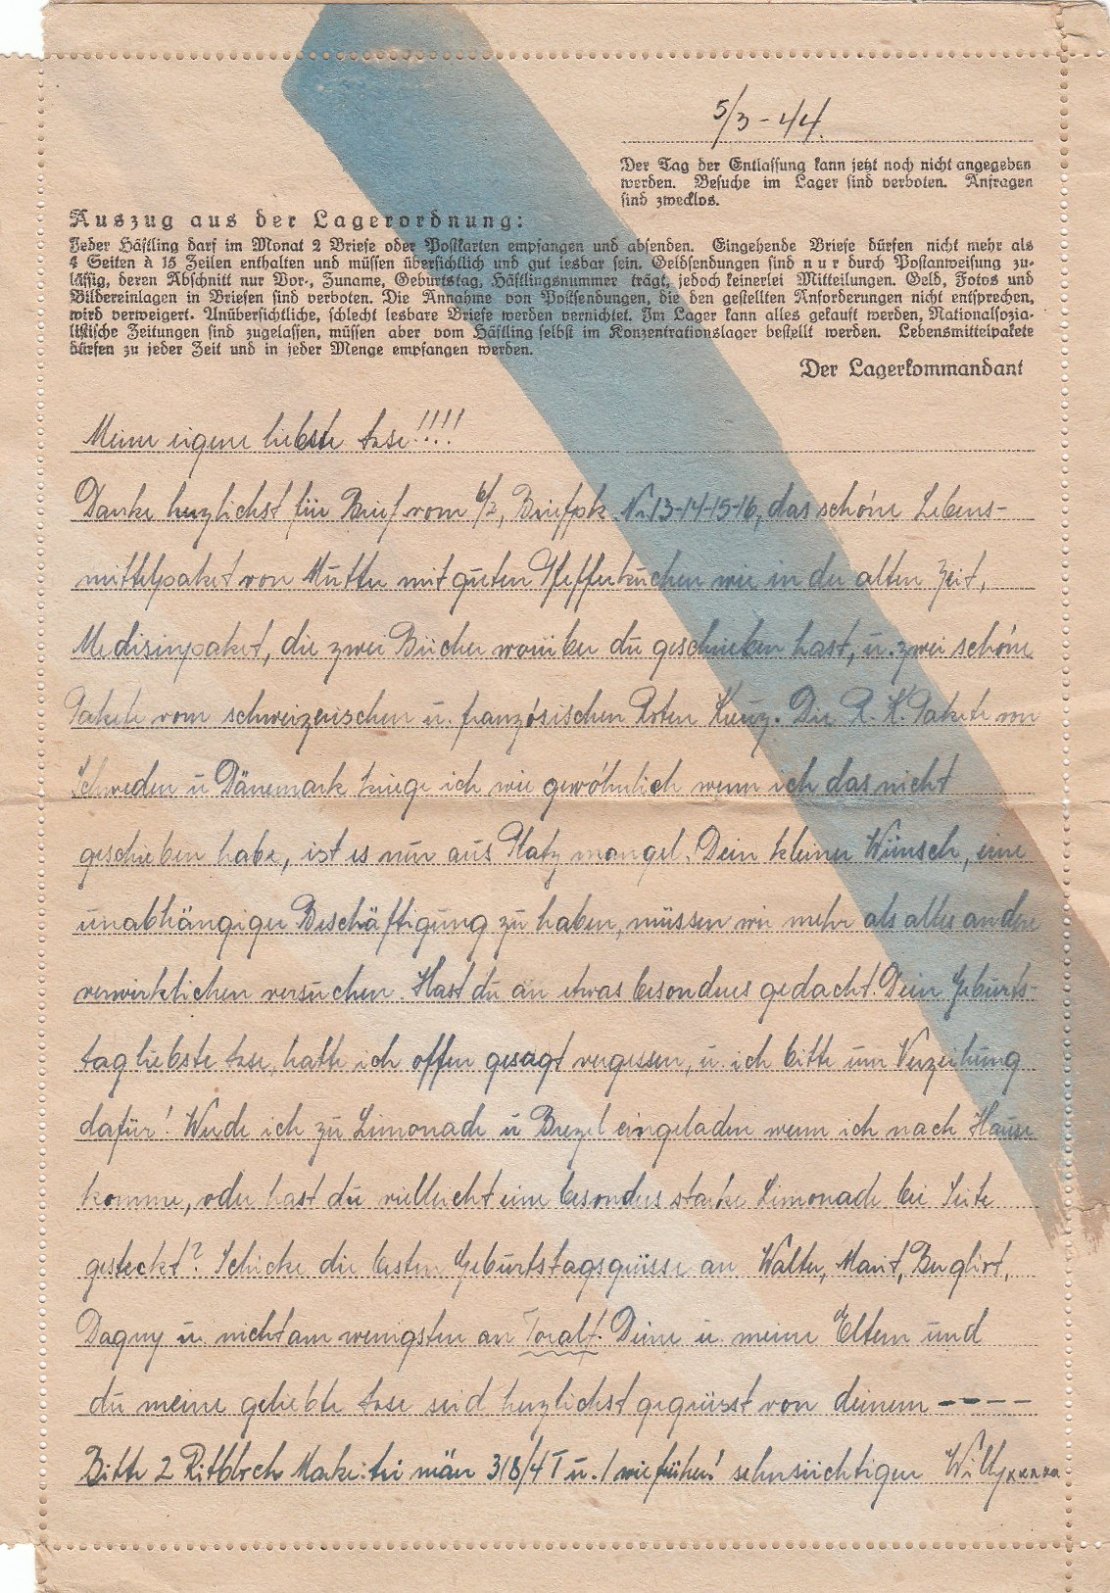 5/3-44.
Der Tag der Entlassung kann jetzt noch nicht angegeben
werden. Besuche im Lager sind verboten. Anfragen
sind zwecklos.
Auszug aus der Lagerordnung:
Jeder Häftling darf im Monat 2 Briefe oder Postkarten empfangen und absenden. Eingehende Briefe dürfen nicht mehr als
4 Seiten à 15 Zeilen enthalten und müssen übersichtlich und gut lesbar sein. Geldsendungen sind nur durch Postanweisung zu-
lässig, deren Abschnitt nur Vor-, Zuname, Geburtstag, Häftlingsnummer trägt, jedoch keinerlei Mitteilungen. Geld, Fotos und
Bildereinlagen in Briefen sind verboten. Die Annahme von Postsendungen, die den gestellten Anforderungen nicht entsprechen,
wird verweigert. Unübersichtliche, schlecht lesbare Briefe werden vernichtet. Im Lager kann alles gekauft werden, Nationalsozia-
listische Zeitungen sind zugelassen, müssen aber vom Häftling selbst im Konzentrationslager bestellt werden. Lebensmittelpakete
dürfen zu jeder Zeit und in jeder Menge empfangen werden.
Der Lagerkommandant
Meine eigene liebste Aase!!!!
Danke herzlichst für Brief vom 6/2, Briefpk. Nr 13-14-15-16, das schöne Lebens-
mittelpaket von Mutter mit guten Pfefferkuchen wie in der alten Zeit,
Medisinpaket, die zwei Bücher worüber du geschrieben hast, u. zwei schöne
Pakete vom schweizerischen u. französischen Roten Kreuz. Die R. K. Pakete von
Schweden u Dänemark kriege ich wie gewöhnlich wenn ich das nicht
geschieben habe, ist es nur aus Platz mangel. Dein kleiner Wunsch, eine
unabhängiger Beschäftigung zu haben, müssen wir mehr als alles andere
verwirklichen versuchen. Hast du an etwas besonderes gedacht? Dein Geburts-
tag liebste Aase, hatte ich offen gesagt vergessen, u. ich bitte um Verzeihung
dafür! Werde ich zu Limonade u Brezel eingeladen wenn ich nach Hause
komme, oder hast du vielleicht eine besonders starke Limonade bei Seite
gesteckt? Schicke die besten Geburtstagsgrüsse an Walter, Marit, Bergliot,
Dagny u. nicht am wenigsten an Toralf. Deine u. meine Eltern und
du meine geliebte Aase seid herzlichst gegrüsst von deinem ----
Bitte 2 318/4 T u. 1 wie früher! sehnsüchtigen Willy xxxxx